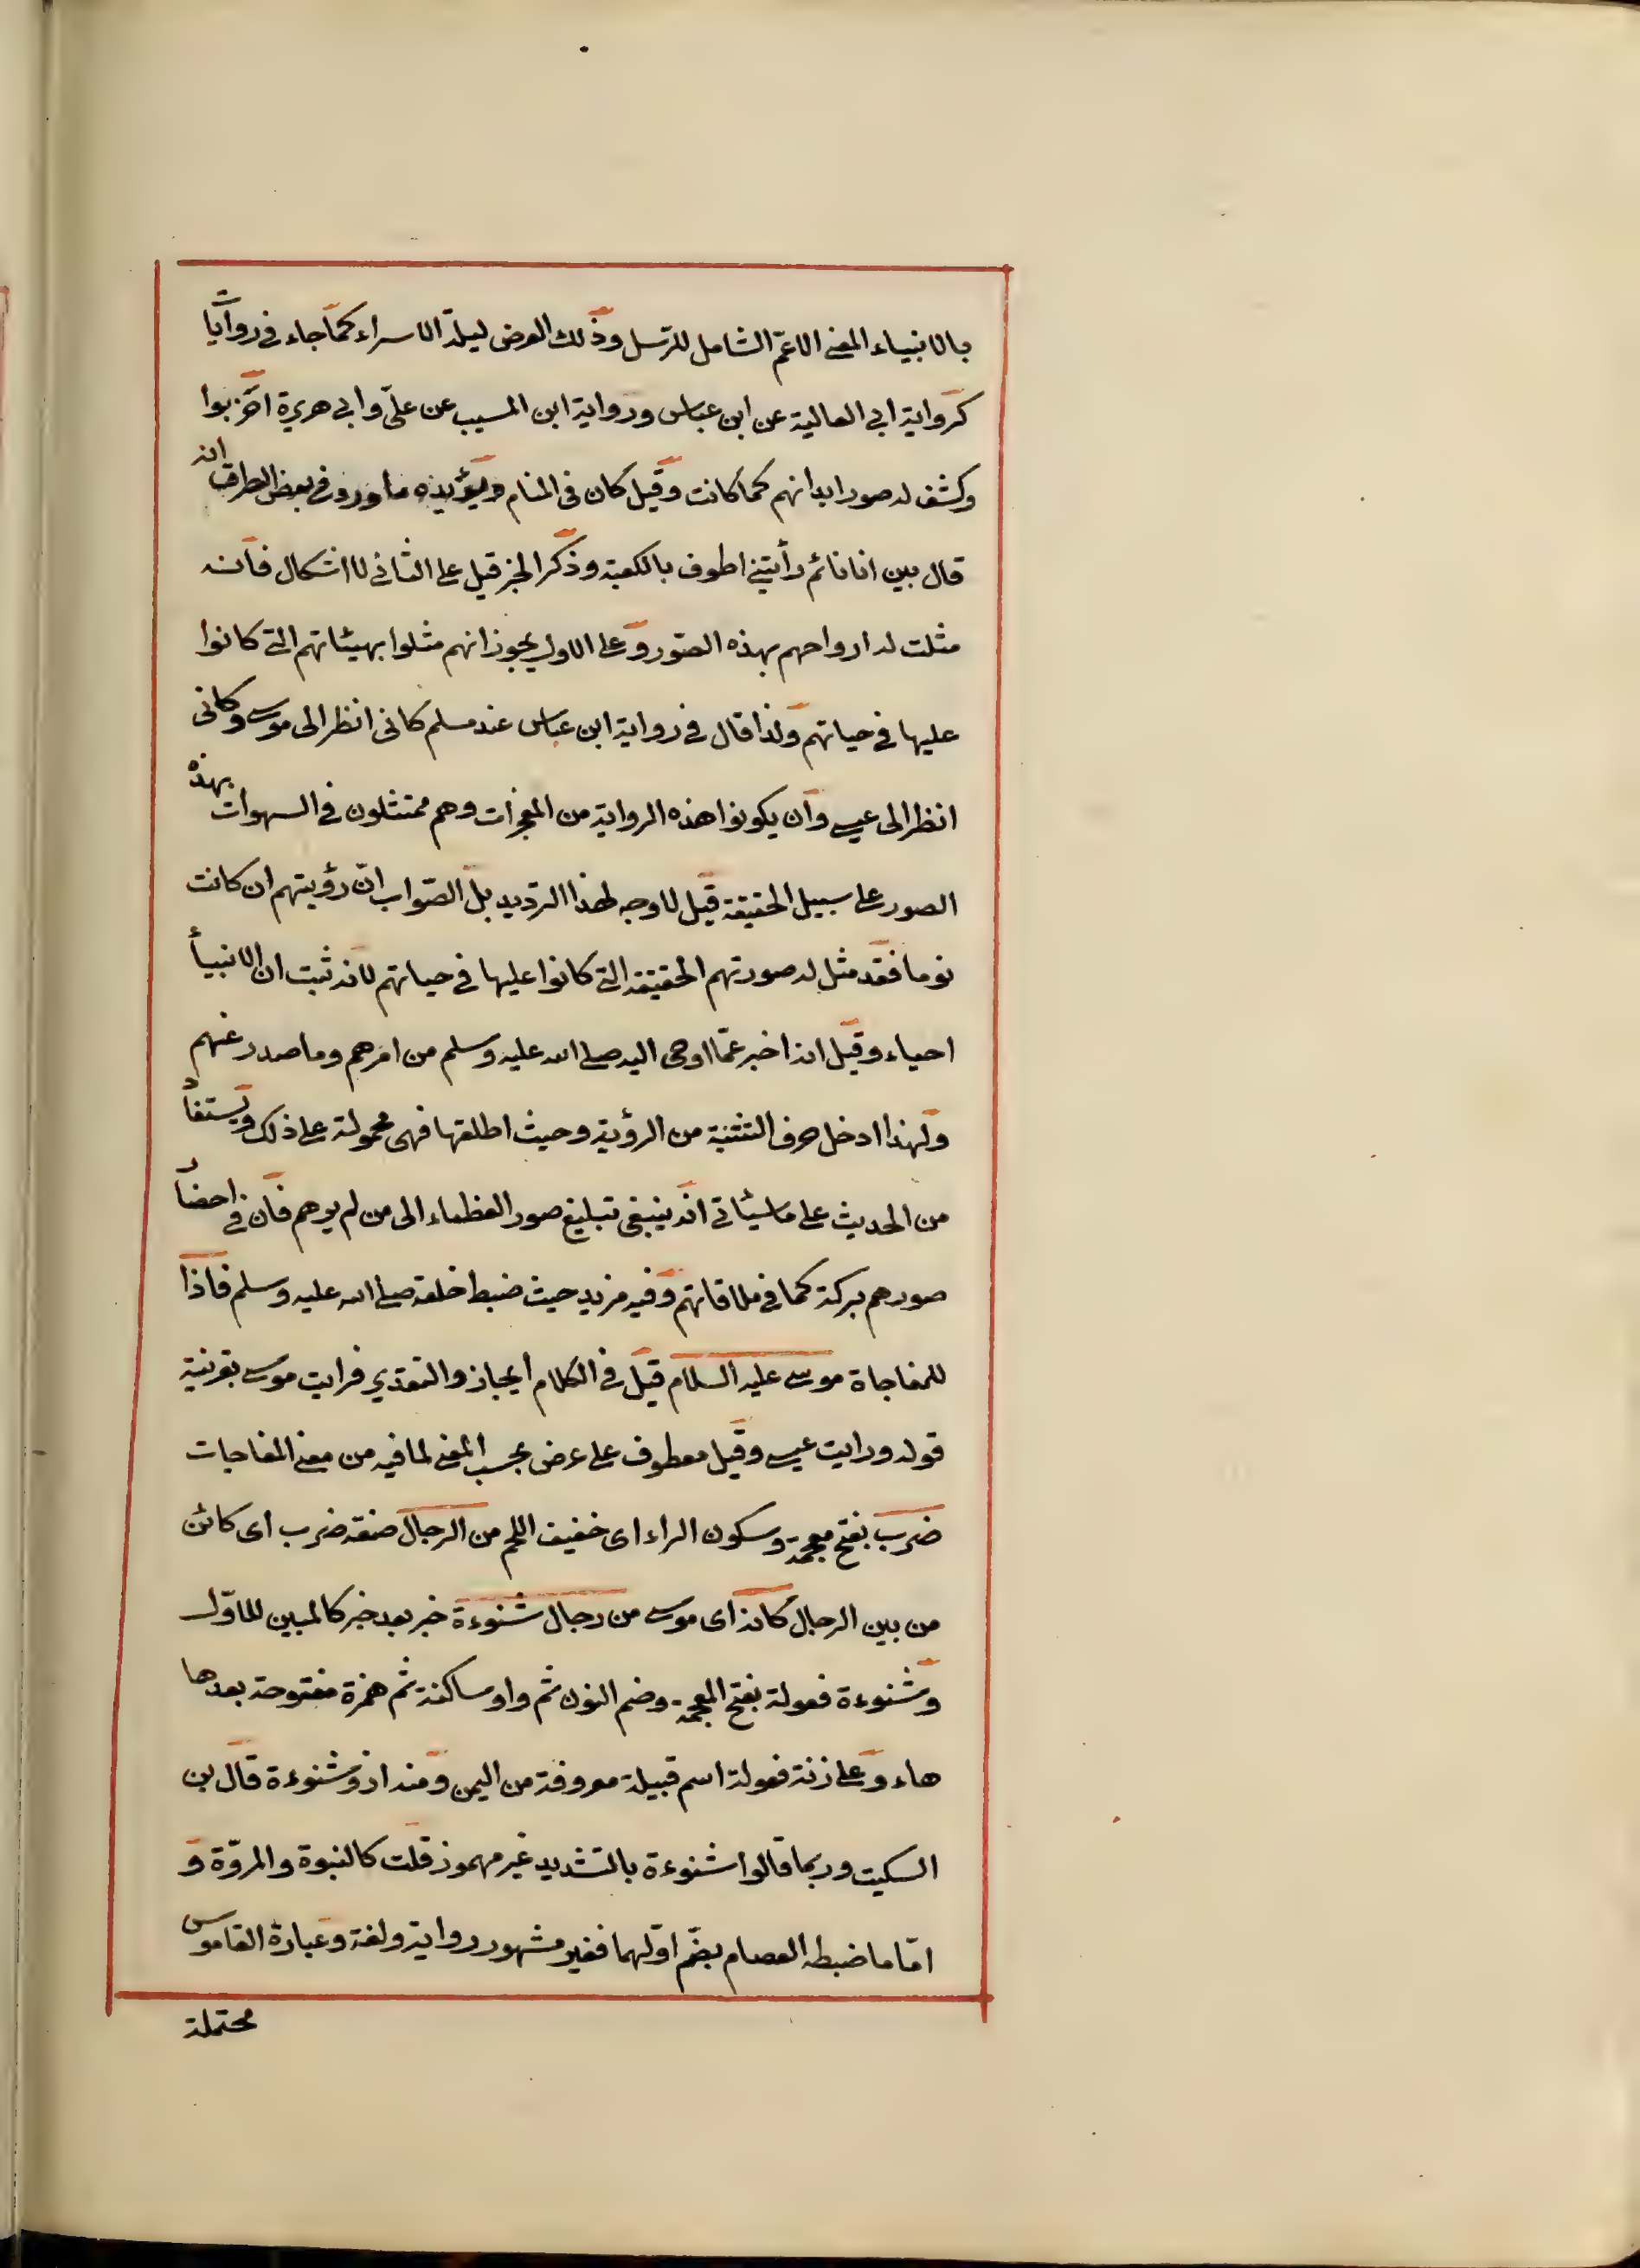 بالانبياء المعنى الاعمّ الشامل للرسل وذلك العرض ليلة الاسراء كما جاء فى روايات
كرواية ابى العالية عن ابن عباس ورواية ابن المسيب عن علىّ وابى هريرة
وكشف له صور ابدانهم كما كانت وقيل كان فى المنام ويؤيده ما ورد فى بعض الطرق انه
قال بين انا نائم رأيتنى اطوف بالكعبة وذكر الخبر قيل على الثانى لا اشكال فانه
مثلت له ارواحهم بهذه الصّور وعلى الاول يجوز انهم مثلوا بهيئاتهم التى كانوا
عليها فى حياتهم ولذا قال فى رواية ابن عباس عند مسلم كانى انظر الى موسى وكانى
انظر الى عيسى وان يكونوا هذه الرواية من المعجزات وهم متمثلون فى السموات بهذه
الصور على سبيل الحقيقة قيل لا وجه لهذا الترديد بل الصّواب انّ رؤيتهم ان كانت
نوما فقد مثل له صورتهم الحقيقة التى كانوا عليها فى حياتهم لانه ثبت ان الانبيأ
احياء وقيل انه اخبر عمّا اوحى اليه صلى الله عليه وسلم من امرهم وما صدر عنهم
ولهذا ادخل حرف التثنية من الرؤية وحيث اطلقها فهى محمولة على ذلك ويستفاد
من الحديث على ما سيأتى انه ينبغى تبليغ صور العظماء الى من لم يرهم فان فى احضار
صورهم بركة كما فى ملاقاتهم وفيه مزيد حيث ضبط خلقة صلى الله عليه وسلم فاذا
للمفاجاة موسى عليه السلام قيل فى الكلام ايجاز والتقدير فرايت موسى بقرينة
قوله ورايت عيسى وقيل معطوف على عرض بحسب المعنى لما فيه من معنى المفاجات
ضرب بفتح معجمة وسكون الراء اى خفيف اللحم من الرجال صفة ضرب اى كائن
من بين الرجال كانه اى موسى من رجال شنوءة خبر بعد خبر كالمبين للاوّل
وشنوءة فعولة بفتح المعجمة وضم النون ثم واو ساكنة ثم همزة مفتوحة بعدها
هاء وعلى زنة فعولة اسم قبيلة معروفة من اليمن ومنه ازد شنوءة قال بن
السكيت وربما قالوا شنوءة بالتشديد غير مهموز قلت كالنبوة والمروّة و
امّا ما ضبطه العصام بضمّ اوّلهما فغير مشهور رواية ولغة وعبارة القاموس
محتملة